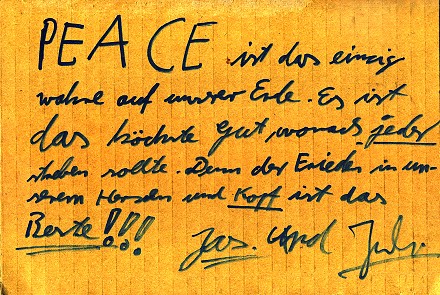 PEACE ist das einzig
wahre auf unsrer Erde. Es ist
das höchste Gut, wonach jeder
streben sollte. Denn der Frieden in un-
serem Herzen und Kopf ist das
Beste!!!
Jas. und